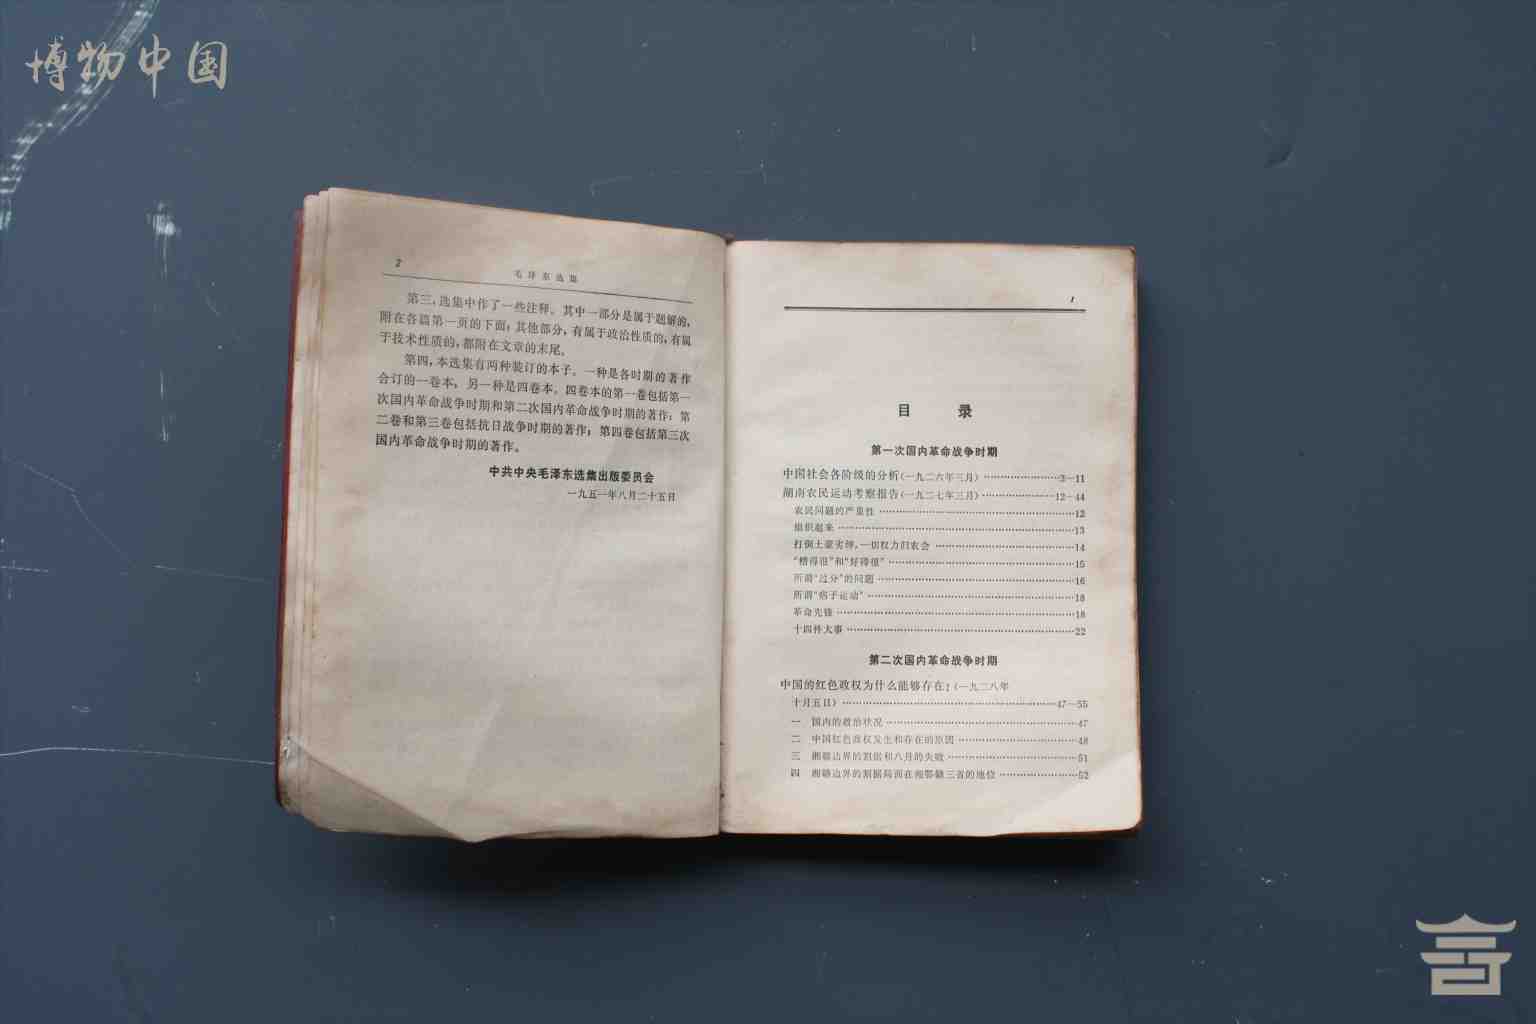 博物中国
2
毛泽东选集
第三,选集中作了一些注释。其中一部分是属于题解的,
附在各篇第一页的下面;其他部分,有属于政治性质的,有属
于技术性质的,都附在文章的末尾。
第四,本选集有两种装订的本子。一种是各时期的著作
合订的一卷本,另一种是四卷本。四卷本的第一卷包括第一
次国内革命战争时期和第二次国内革命战争时期的著作;第
二卷和第三卷包括抗日战争时期的著作;第四卷包括第三次
国内革命战争时期的著作。
中共中央毛泽东选集出版委员会
一九五一年八月二十五日
1
目 录
第一次国内革命战争时期
中国社会各阶级的分析(一九二六年三月)……………………3—11
湖南农民运动考察报告(一九二七年三月)……………………12—44
农民问题的严重性……………………12
组织起来……………………13
打倒土豪劣绅,一切权力归农会……………………14
“糟得很”和“好得很”……………………15
所谓“过分”的问题……………………16
所谓“痞子运动”……………………18
革命先锋……………………18
十四件大事……………………22
第二次国内革命战争时期
中国的红色政权为什么能够存在?(一九二八年
十月五日)……………………47—55
一 国内的政治状况……………………47
二 中国红色政权发生和存在的原因……………………48
三 湘赣边界的割据和八月的失败……………………51
四 湘赣边界的割据局面在湘鄂赣三省的地位……………………52